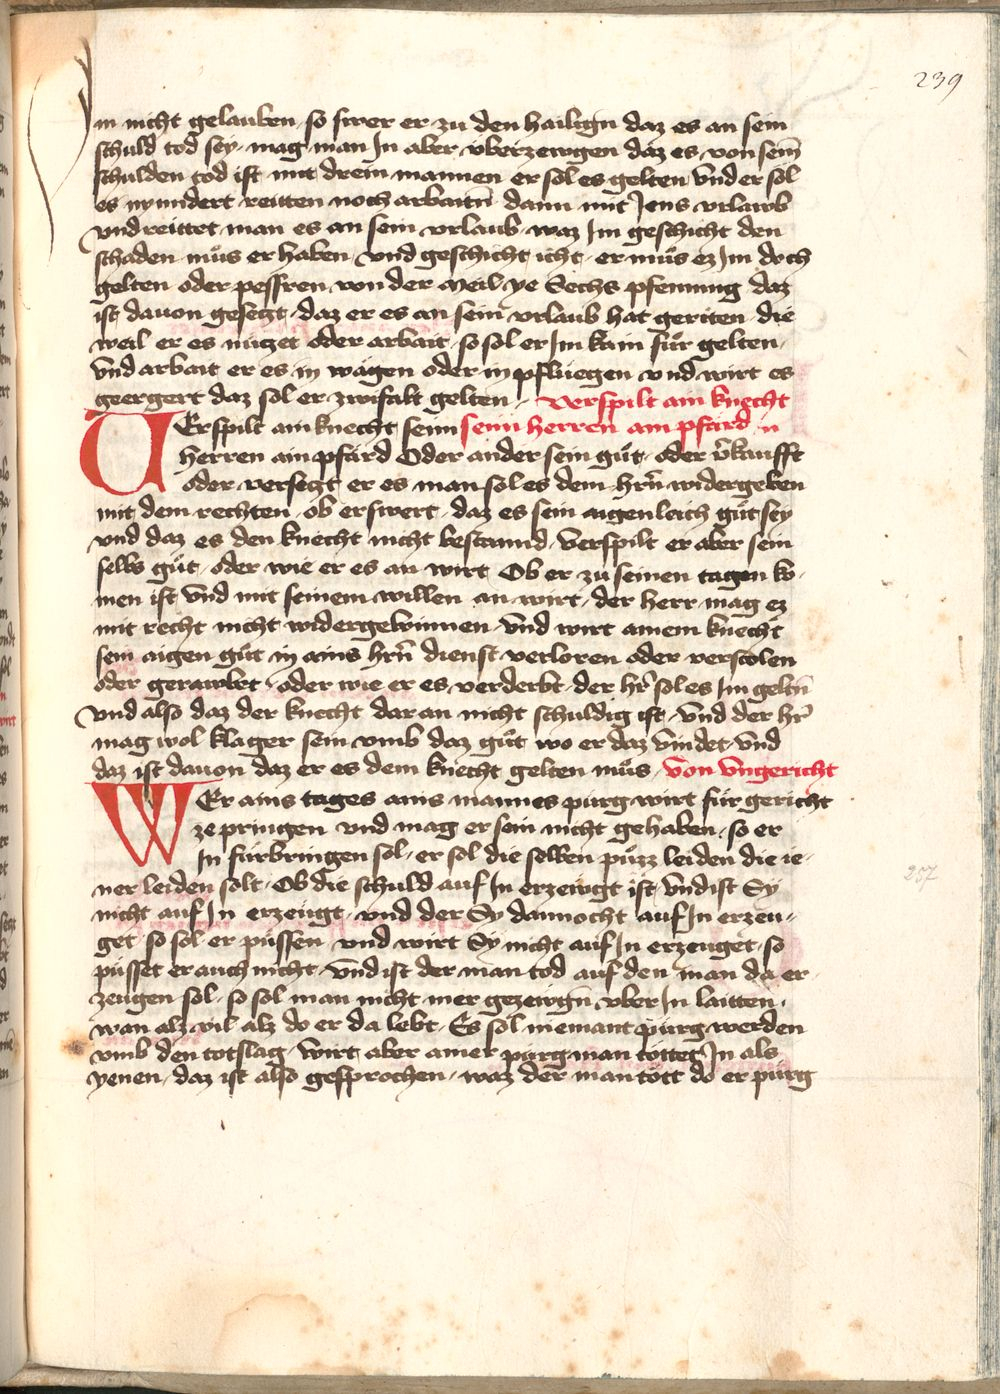 239
im nicht gelauben so swer er zu den hailign daz es an sein
schuld tod sey mag man In aber vberzewgen daz es von sein̄
schulden tod ist mit drein mannen er sol es gelten Vnd er sol
es nyundert reitten noch arbaitn̄ dann mit Jens vrlawb
vnd reittet man es an sein vrlaub waz Im geschicht den
schaden můs er haben vnd geschicht icht er můs ez Im doch
gelten oder pessren von der Meil ye Sechs pfenning daz
ist dauon gesetzt daz er es an sein vrlaub hat geriten die
weil er es nützet oder arbait so sol er Im kain fůr gelten
Vnd arbait er es in wägen oder in pfluegen vnd wirt es
geergert daz sol er zwifalt gelten Verspilt ain knecht
VErspilt ain knecht seim seim herren ain pfärd
herren ain pfärd Oder ander sein gůt oder v̄kaufft
oder versetzt er es man sol es dem hrn̄ widergeben
mit dem rechten ob er swert daz es sein aigenleich gůt sey
vnd daz es den knecht nicht bestaund Verspilt er aber sein
selbs gůt oder wie er es an wirt Ob er zu seinen tagen ko-
men ist Vnd mit seinem willen an wirt der herr mag ez
mit recht nicht widergewinnen Vnd wirt ainem knecht
sein aigen gůt in ains hrn̄ dienst verloren oder verstolen
oder gerawbt oder wie er es verderbt der hr̄ sol es Im geltn̄
Vnd also daz der knecht daran nicht schuldig ist Vnd der hr̄
mag wol klager sein vmb daz gůt wo er daz vindet Vnd
daz ist dauon daz er es dem knecht gelten můs Von Vngericht
WEr ains tages ains mannes purg wirt für gericht
ze pringen vnd mag er sein nicht gehaben so er
In fürbringen sol er sol die selben půzz leiden die ie-
ner leiden solt Ob die schuld auf In erzewgt ist Vnd ist Sy
nicht auf In erzeugt vnd der Sy dannocht auf In erzeu-
get so sol er püssen vnd wirt Sy nicht auf In erzeuget so
püsset er auch nicht Vnd ist der man tod auf den man da er-
zeugen sol so sol man nicht mer gezewgn̄ vber In laitten
wan alz vil alz do er da lebt Es sol niemant purg werden
vmb den totslag wirt aber ainer purg man töttet In als
yenen daz ist also gesprochen waz der man tött do er purg
257